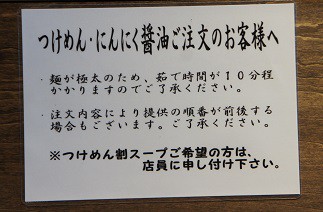 つけめん・にんにく醤油ご注文のお客様へ
・麺が極太のため、茹で時間が１０分程
かかりますのでご了承ください。
・注文内容により提供の順番が前後する
場合もございます。ご了承ください。
※つけめん割スープご希望の方は、
店員に申し付け下さい。